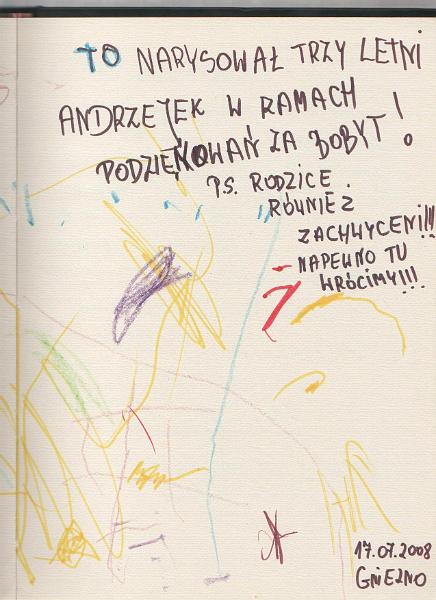 TO NARYSOWAŁ TRZY LETNI
ANDRZEJEK W RAMACH
PODZIĘKOWAŃ ZA POBYT!
PS. RODZICE.
RÓWNIEZ
ZACHWYCENI!!!
NAPEWNO TU
WRÓCIMY!!!
17.07.2008
GNIEZNO